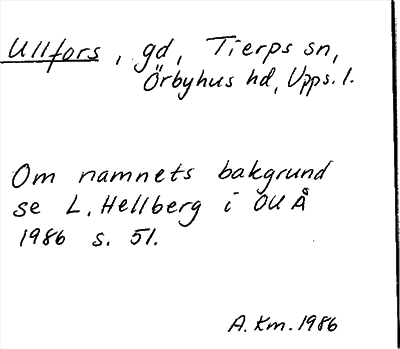 Ullfors, gd, Tierps sn,
Örbyhus hd, Upps. l.
Om namnets bakgrund
se L. Hellberg i OUÅ
1986 s. 51.
A. Km. 1986